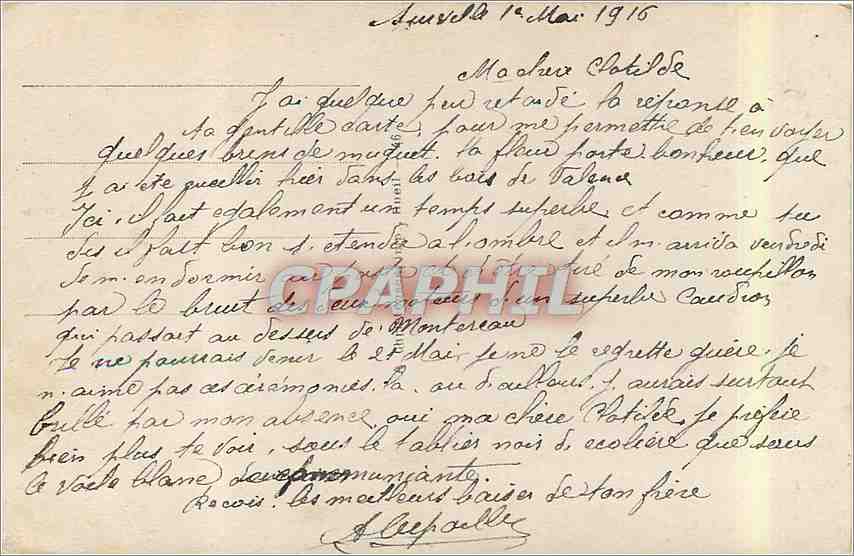 1e Mai 1916
Ma chere Clotilde
J'ai quelque peu retardé la réponse à
ta gentille carte, pour me permettre de t'envoyer
quelques brins de muguet. la fleur porte bonheur, que
j'ai été cueillir hier dans les bois de Valence
Ici, il fait egalement un temps superbe, et comme tu
dis il fait bon s'etendre a l'ombre et il m'arriva vendredi
de m'endormir de mon roupillon
par le bruit des deux moteurs d'un superbe Caudron
qui passait au dessus de Montereau
Je ne pourrais venir le Mai, je ne le regrette guère, je
n'aime pas ces cérémonies. la, ou d'ailleurs, j'aurais surtout
brillé par mon absence, oui ma chère Clotilde, je préfère
bien plus te voir, sous le tablier noir d'ecolière que sous
le voile blanc de communiante.
Recois. les meilleurs baiser de ton frère
CPAPHIL